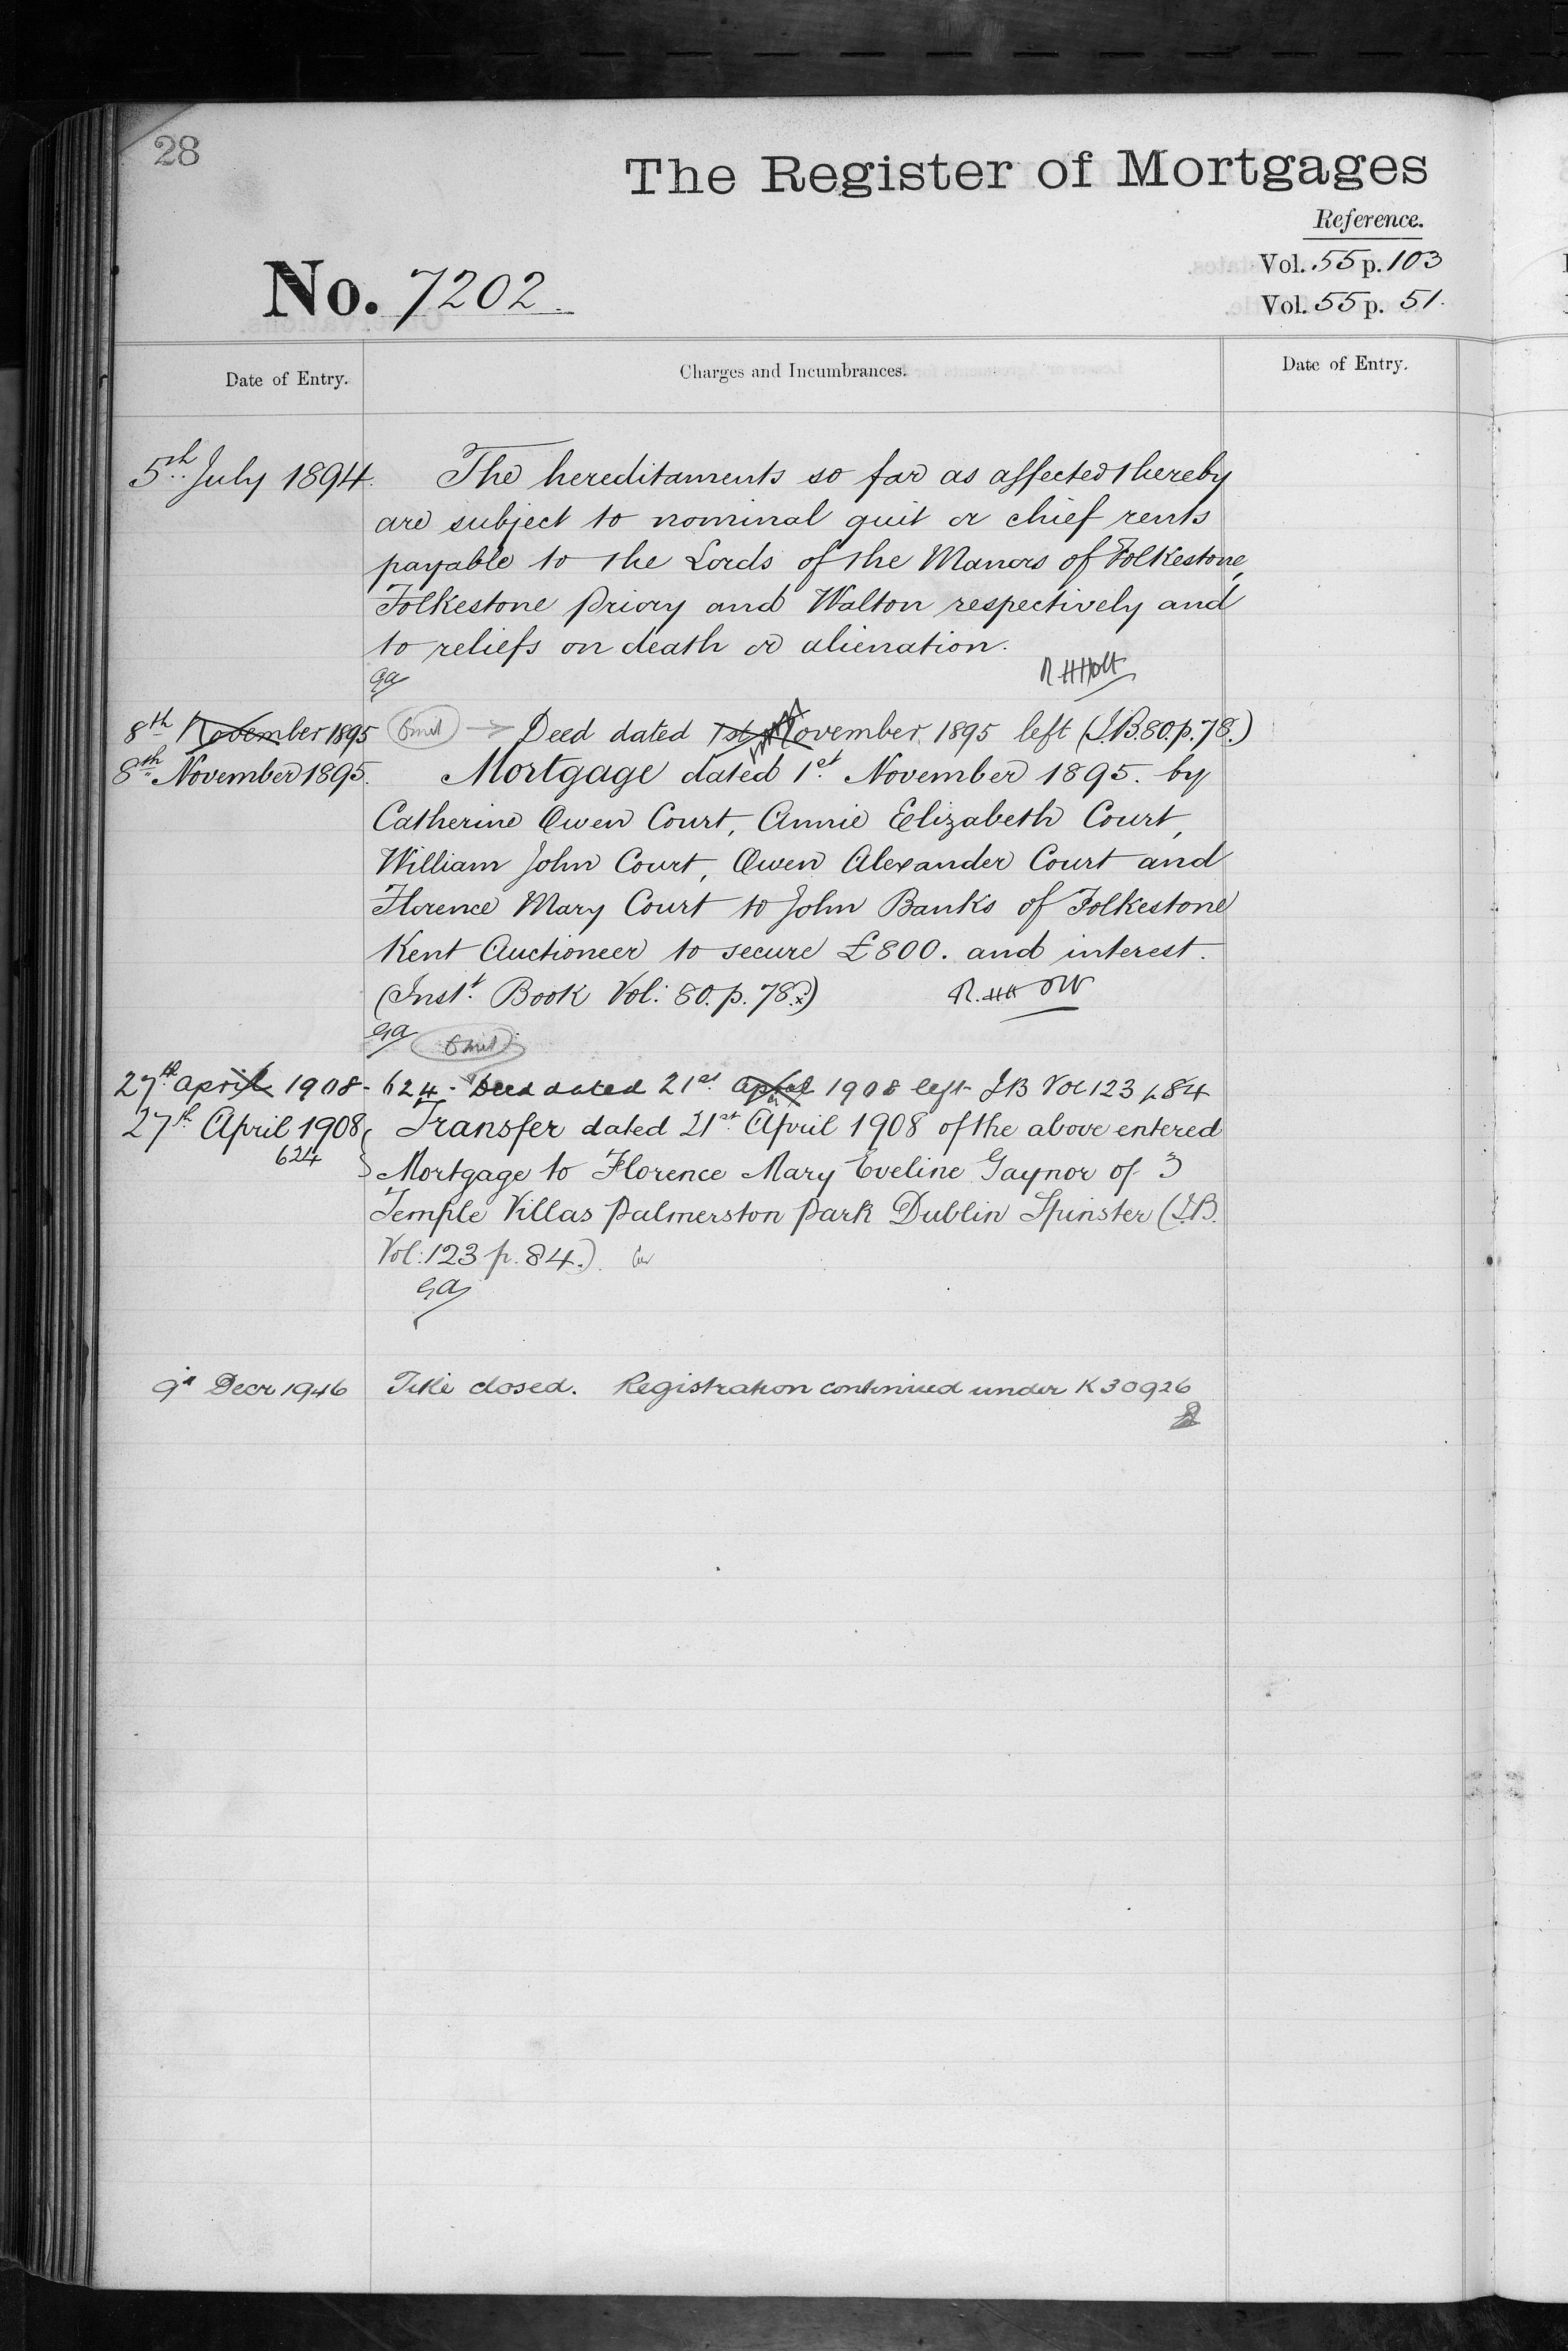 28
The Register of Mortgages
Reference.
Vol. 55 p. 103
No. 7202.
Vol. 55 p. 51.
Date of Entry.
Charges and Incumbrances.
Date of Entry.
5th July 1894. The hereditaments so far as affected thereby
are subject to nominal quit or chief rents
payable to the Lords of the Manors of Folkestone,
Folkestone Priory and Walton respectively and
to reliefs on death or alienation.
GA R H Holt
8th November 1895 Omit Deed dated 1st November 1895 left (I.B. 80. p. 78.)
8th November 1895. Mortgage dated 1st November 1895. by
Catherine Owen Court, Annie Elizabeth Court,
William John Court, Owen Alexander Court and
Florence Mary Court to John Banks of Folkestone
Kent Auctioneer to secure £800. and interest.
(Inst. Book Vol: 80. p. 78.)
GA Omit
27th April 1908 - 624 - Deed dated 21st April 1908 left IB Vol 123 p 84
27th April 1908 Transfer dated 21st April 1908 of the above entered
624 Mortgage to Florence Mary Eveline Gaynor of 3
Temple Villas Palmerston Park Dublin Spinster (I.B.
Vol: 123 p. 84.)
GA
9th Decr 1946 Title closed. Registration continued under K30926